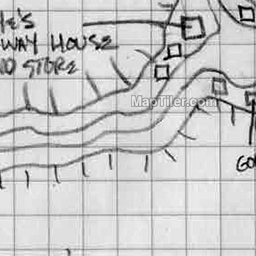 HE'S
WAY HOUSE
ND STORE
MapTiler.com
GO